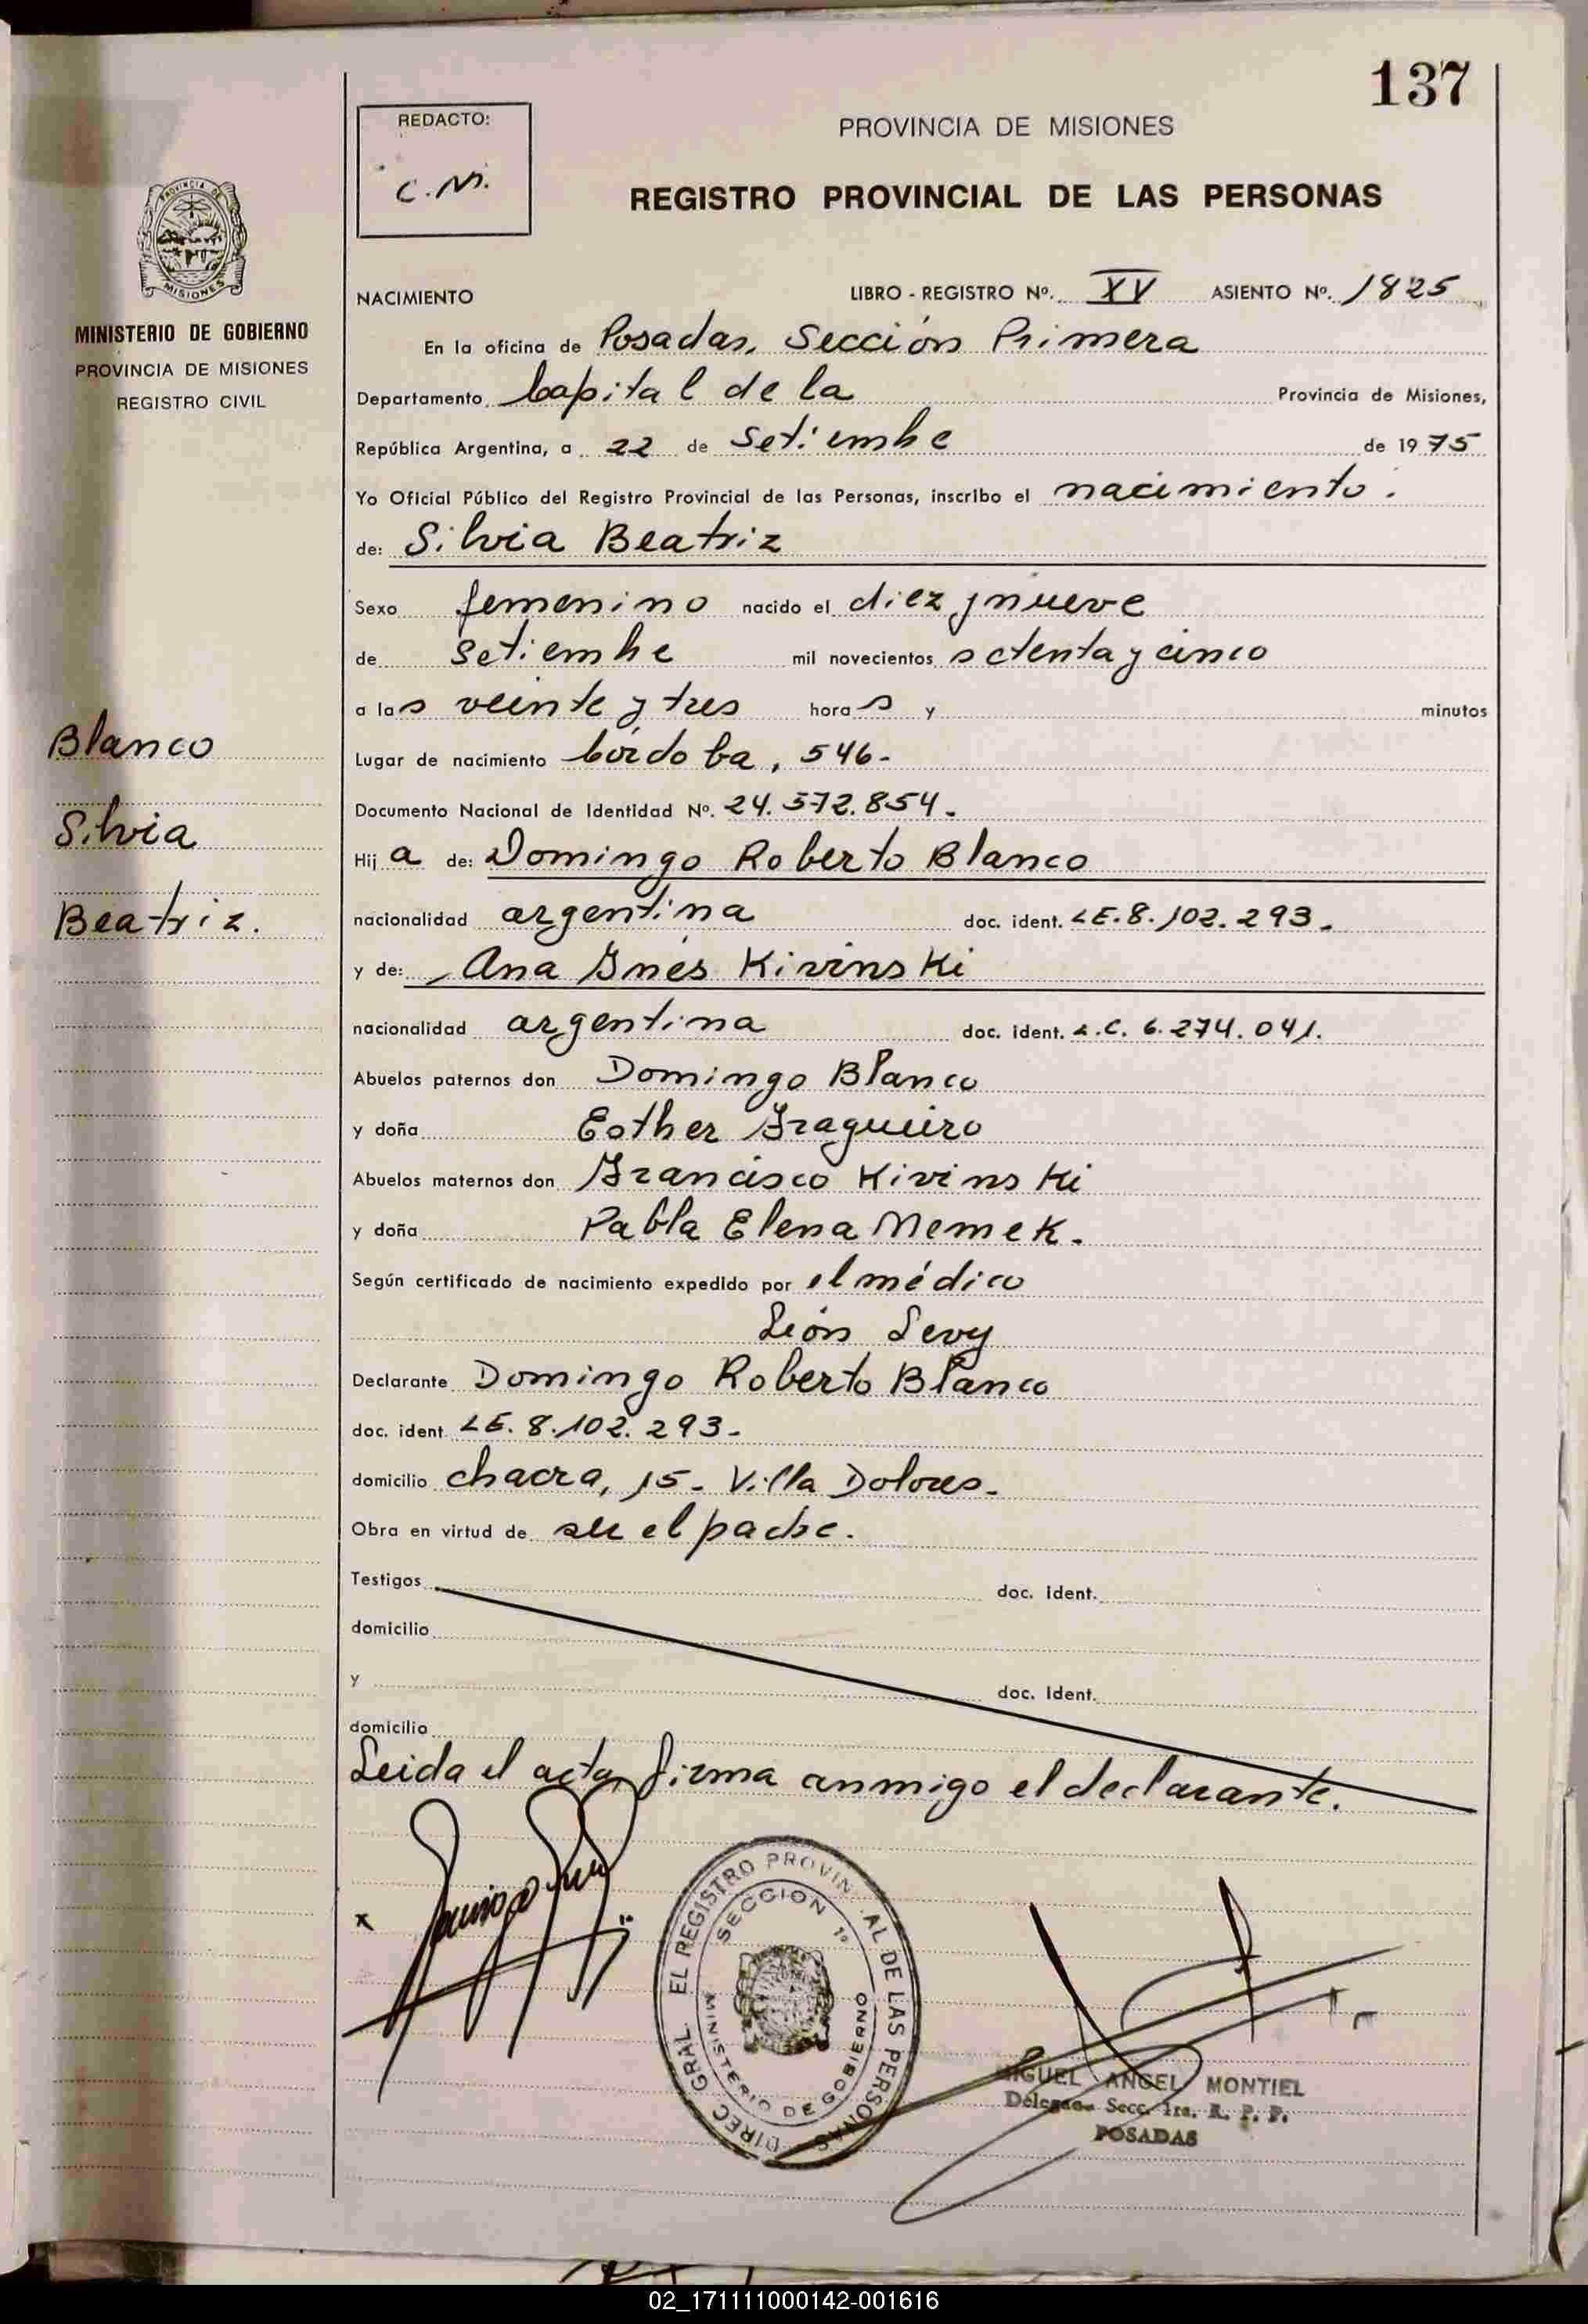 137
REDACTO:
C.M.
PROVINCIA DE MISIONES
REGISTRO PROVINCIAL DE LAS PERSONAS
PROVINCIA DE
MISIONES
MINISTERIO DE GOBIERNO
PROVINCIA DE MISIONES
REGISTRO CIVIL
NACIMIENTO LIBRO - REGISTRO Nº. XV ASIENTO Nº. 1825
En la oficina de Posadas, Sección Primera
Departamento Capital de la Provincia de Misiones,
República Argentina, a 22 de Setiembre de 1975
Yo Oficial Público del Registro Provincial de las Personas, inscribo el nacimiento.
de: Silvia Beatriz
Sexo femenino nacido el diez y nueve
de Setiembre mil novecientos setenta y cinco
a las veinte y tres horas y minutos
Blanco
Silvia
Beatriz.
Lugar de nacimiento Córdoba, 546-
Documento Nacional de Identidad Nº. 24.572.854-
Hija de: Domingo Roberto Blanco
nacionalidad argentina doc. ident. LE. 8.102.293.
y de: Ana Ines Kivinski
nacionalidad argentina doc. ident. L.C. 6.274.041.
Abuelos paternos don Domingo Blanco
y doña Esther Fragueiro
Abuelos maternos don Francisco Kivinski
y doña Pabla Elena Memek.
Según certificado de nacimiento expedido por el médico
León Levy
Declarante Domingo Roberto Blanco
doc. ident LE. 8.102.293-
domicilio chacra, 15- Villa Dolores-
Obra en virtud de ser el padre.
Testigos doc. ident.
domicilio
y doc. Ident.
domicilio
Leida el acta, firma conmigo el declarante.
x
DIREC. GRAL. EL REGISTRO PROVIN AL DE LAS PERSONAS
SECCION 1º
MINISTERIO DE GOBIERNO
MIGUEL ANGEL MONTIEL
Delegado Secc. 1ra. R. P. P.
POSADAS
02_171111000142-001616